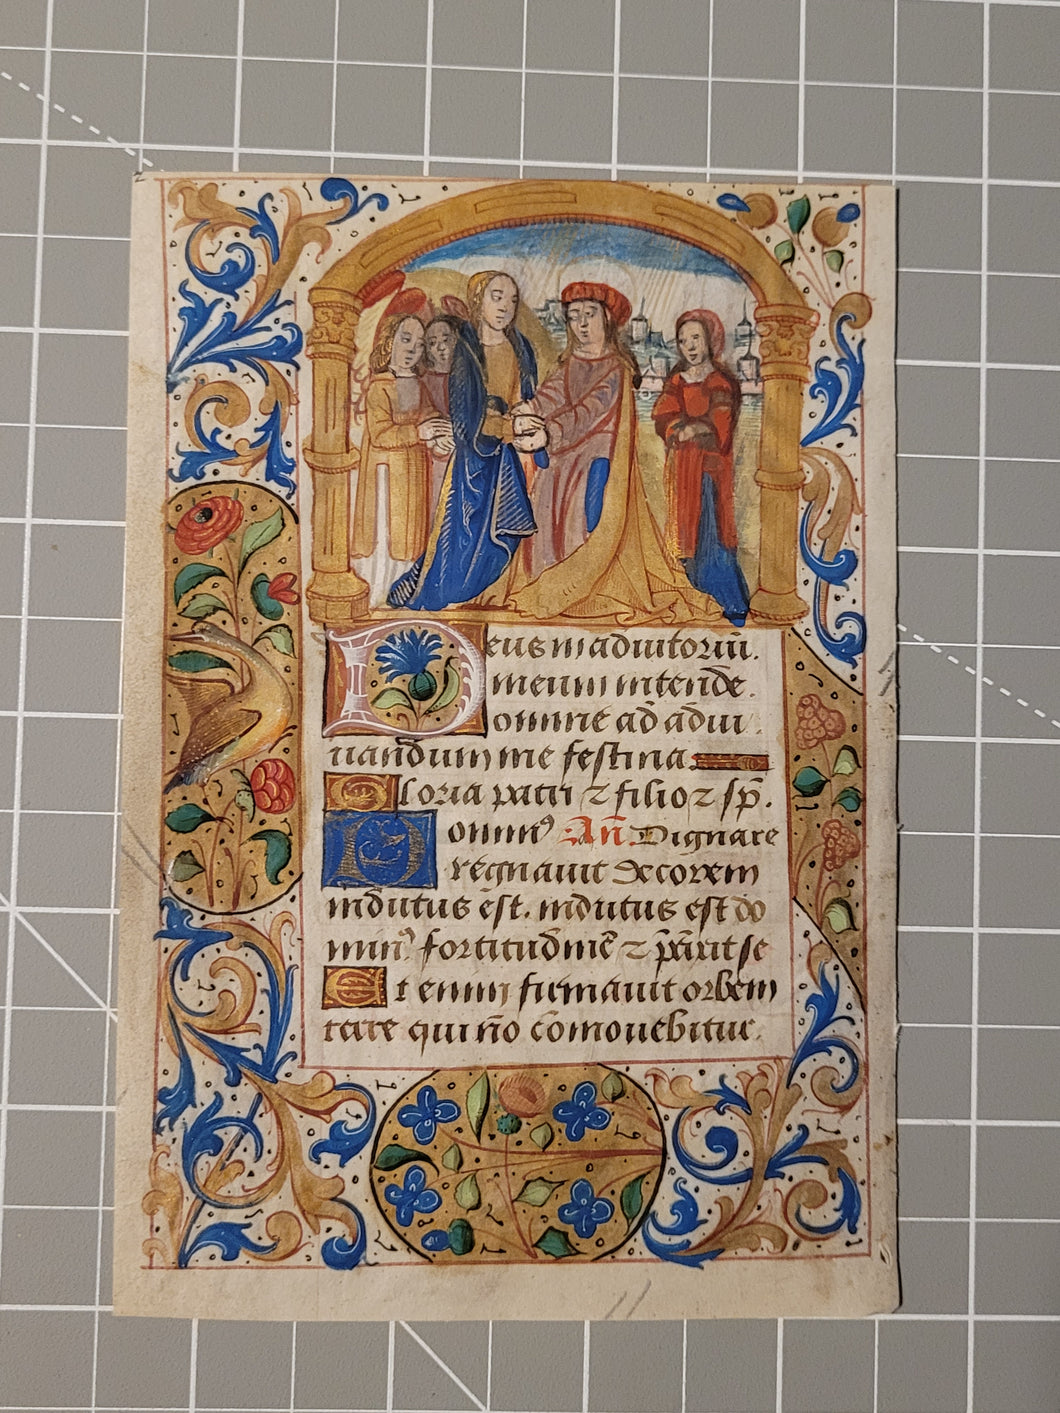 Deus in adiutoriū.
meum intende.
Domine ad adiu
uandum me festina
Gloria patri ⁊ filio ⁊ sp̄.
Dominꝰ Añ. Dignare
regnauit decorem
indutus est. indutus est do
minꝰ fortitudinē ⁊ p̄cinxit se
Et enim firmauit orbem
terre qui ño cōmouebitur.